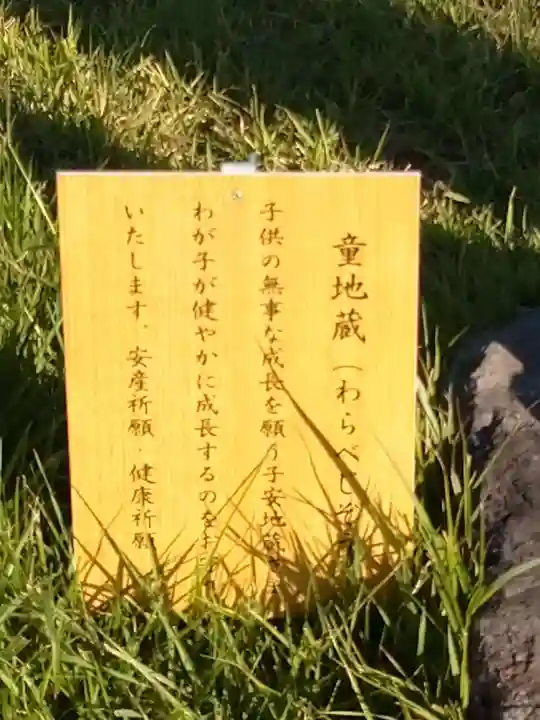 童地蔵（わらべじぞう
子供の無事な成長を願う子安地蔵
わが子が健やかに成長するのをお
いたします。安産祈願・健康祈願